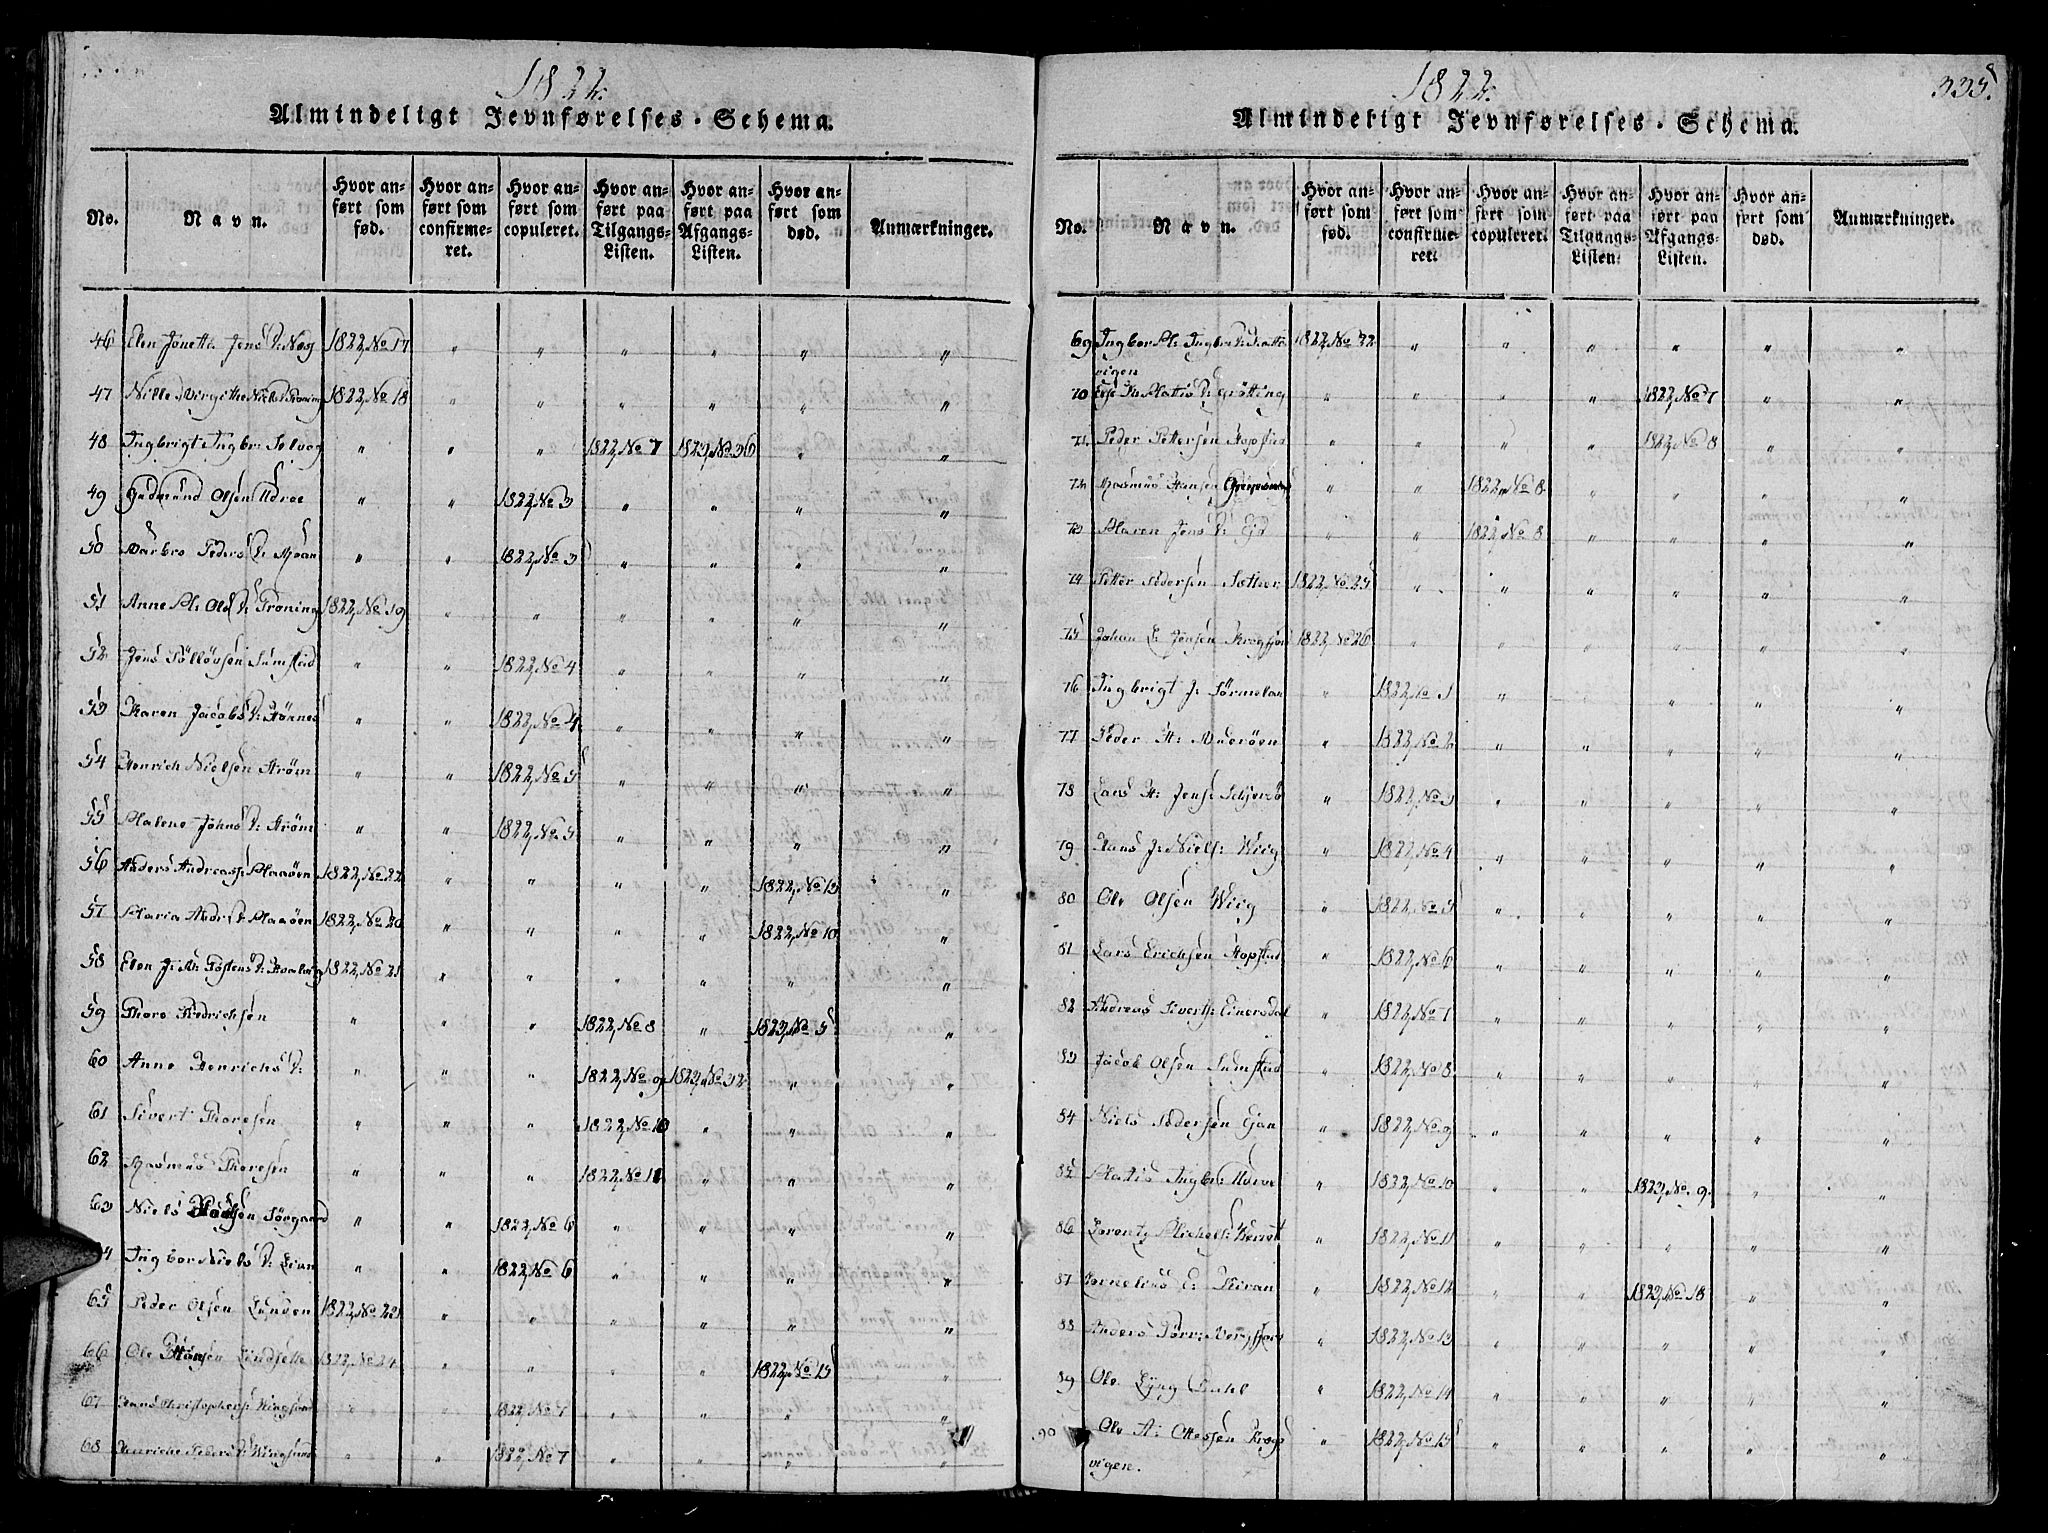 1822.
Almindeligt Jevnførelses-Schema.
No. Navn. Hvor anført som fød. Hvor anført som confirmeret. Hvor anført som copuleret. Hvor anført paa Tilgangs-Listen. Hvor anført paa Afgangs-Listen. Hvor anført som død. Anmærkninger.
46 Elen Jonette Jens D: 1822, No 17 " " " " " "
47 Nille Birgithe Niels D: Froning 1822, No 18 " " " " " "
48 Ingbrigt Ingbr: Selvog " " " 1822, No 7 1823, No 36 " "
49 Gudmund Olsen " " 1822, No 3 " " " "
50 Barbro Peders D: Moan " " 1822, No 3 " " " "
51 Anne M: Ols D: Froning 1822, No 19 " " " " " "
52 Jens Sumstad " " 1822, No 4 " " " "
53 Karen Jacobs D: " " 1822, No 4 " " " "
54 Henrich Nielsen Strøm " " 1822, No 5 " " " "
55 Malene Johns D: Strøm " " 1822, No 5 " " " "
56 Anders Andreass: Maaöen 1822, No 22 " " " " 1822, No 13 "
57 Maria Andr: D: Maaöen 1822, No 20 " " " " 1822, No 10 "
58 Elen J: M: Tostens D: 1822, No 21 " " " " " "
59 Thore Fredrichsen " " " 1822, No 8 " 1823, No 5 "
60 Anne Henrichs D: " " " 1822, No 9 1823, No 32 " "
61 Sivert Thoresen " " " 1822, No 10 " " "
62 Rasmus Thoresen " " " 1822, No 11 " " "
63 Niels Sörgaard " " 1822, No 6 " " " "
64 Ingbor Niels D: Lian " " 1822, No 6 " " " "
65 Peder Olsen Lunden 1822, No 23 " " " " " "
66 Ole Lindsette 1822, No 24 " " " " 1822, No 15 "
67 Hans Christophers: " " 1822, No 7 " " " "
68 Henriche Peders D: " " 1822, No 7 " " " "
1822.
335.
Almindeligt Jevnførelses-Schema.
No. Navn. Hvor anført som fød. Hvor anført som confirmeret. Hvor anført som copuleret. Hvor anført paa Tilgangs-Listen. Hvor anført paa Afgangs-Listen. Hvor anført som død. Anmærkninger.
69 Ingbor M: Ingbr: D: 1822, No 32 " " " " " "
vigen
70 Matis D: Grötting " " " " 1822, No 7 " "
71 Peder Pettersen Hopstad " " " " 1822, No 8 " "
72 Rasmus Hansen " " 1822, No 8 " " " "
73 Maren Jens D: Eid " " 1822, No 8 " " " "
74 Petter Pedersen Sæther 1822, No 25 " " " " " "
75 Johan E: Jensen 1822, No 26 " " " " " "
76 Ingbrigt J: Sörmelan " 1822, No 1 " " " " "
77 Peder H: " 1822, No 2 " " " " "
78 Lars H: Jens: " 1822, No 3 " " " " "
79 Hans J: Niels: Wiig " 1822, No 4 " " " " "
80 Ole Olsen Wiig " 1822, No 5 " " " " "
81 Lars Erichsen Hopstad " 1822, No 6 " " " " "
82 Andreas Siverts: Einersdal " 1822, No 7 " " " " "
83 Jacob Olsen Sumstad " 1822, No 8 " " " " "
84 Niels Pedersen " 1822, No 9 " " " " "
85 Matis Ingbr: " 1822, No 10 " " 1823, No 9. " "
86 Lorentz Michels: " 1822, No 11 " " " " "
87 Cornelius " 1822, No 12 " " 1823, No 18 " "
88 Anders " 1822, No 13 " " " " "
89 Ole Lyng " 1822, No 14 " " " " "
90 Ole A: Ottessen " 1822, No 15 " " " " "
vigen.